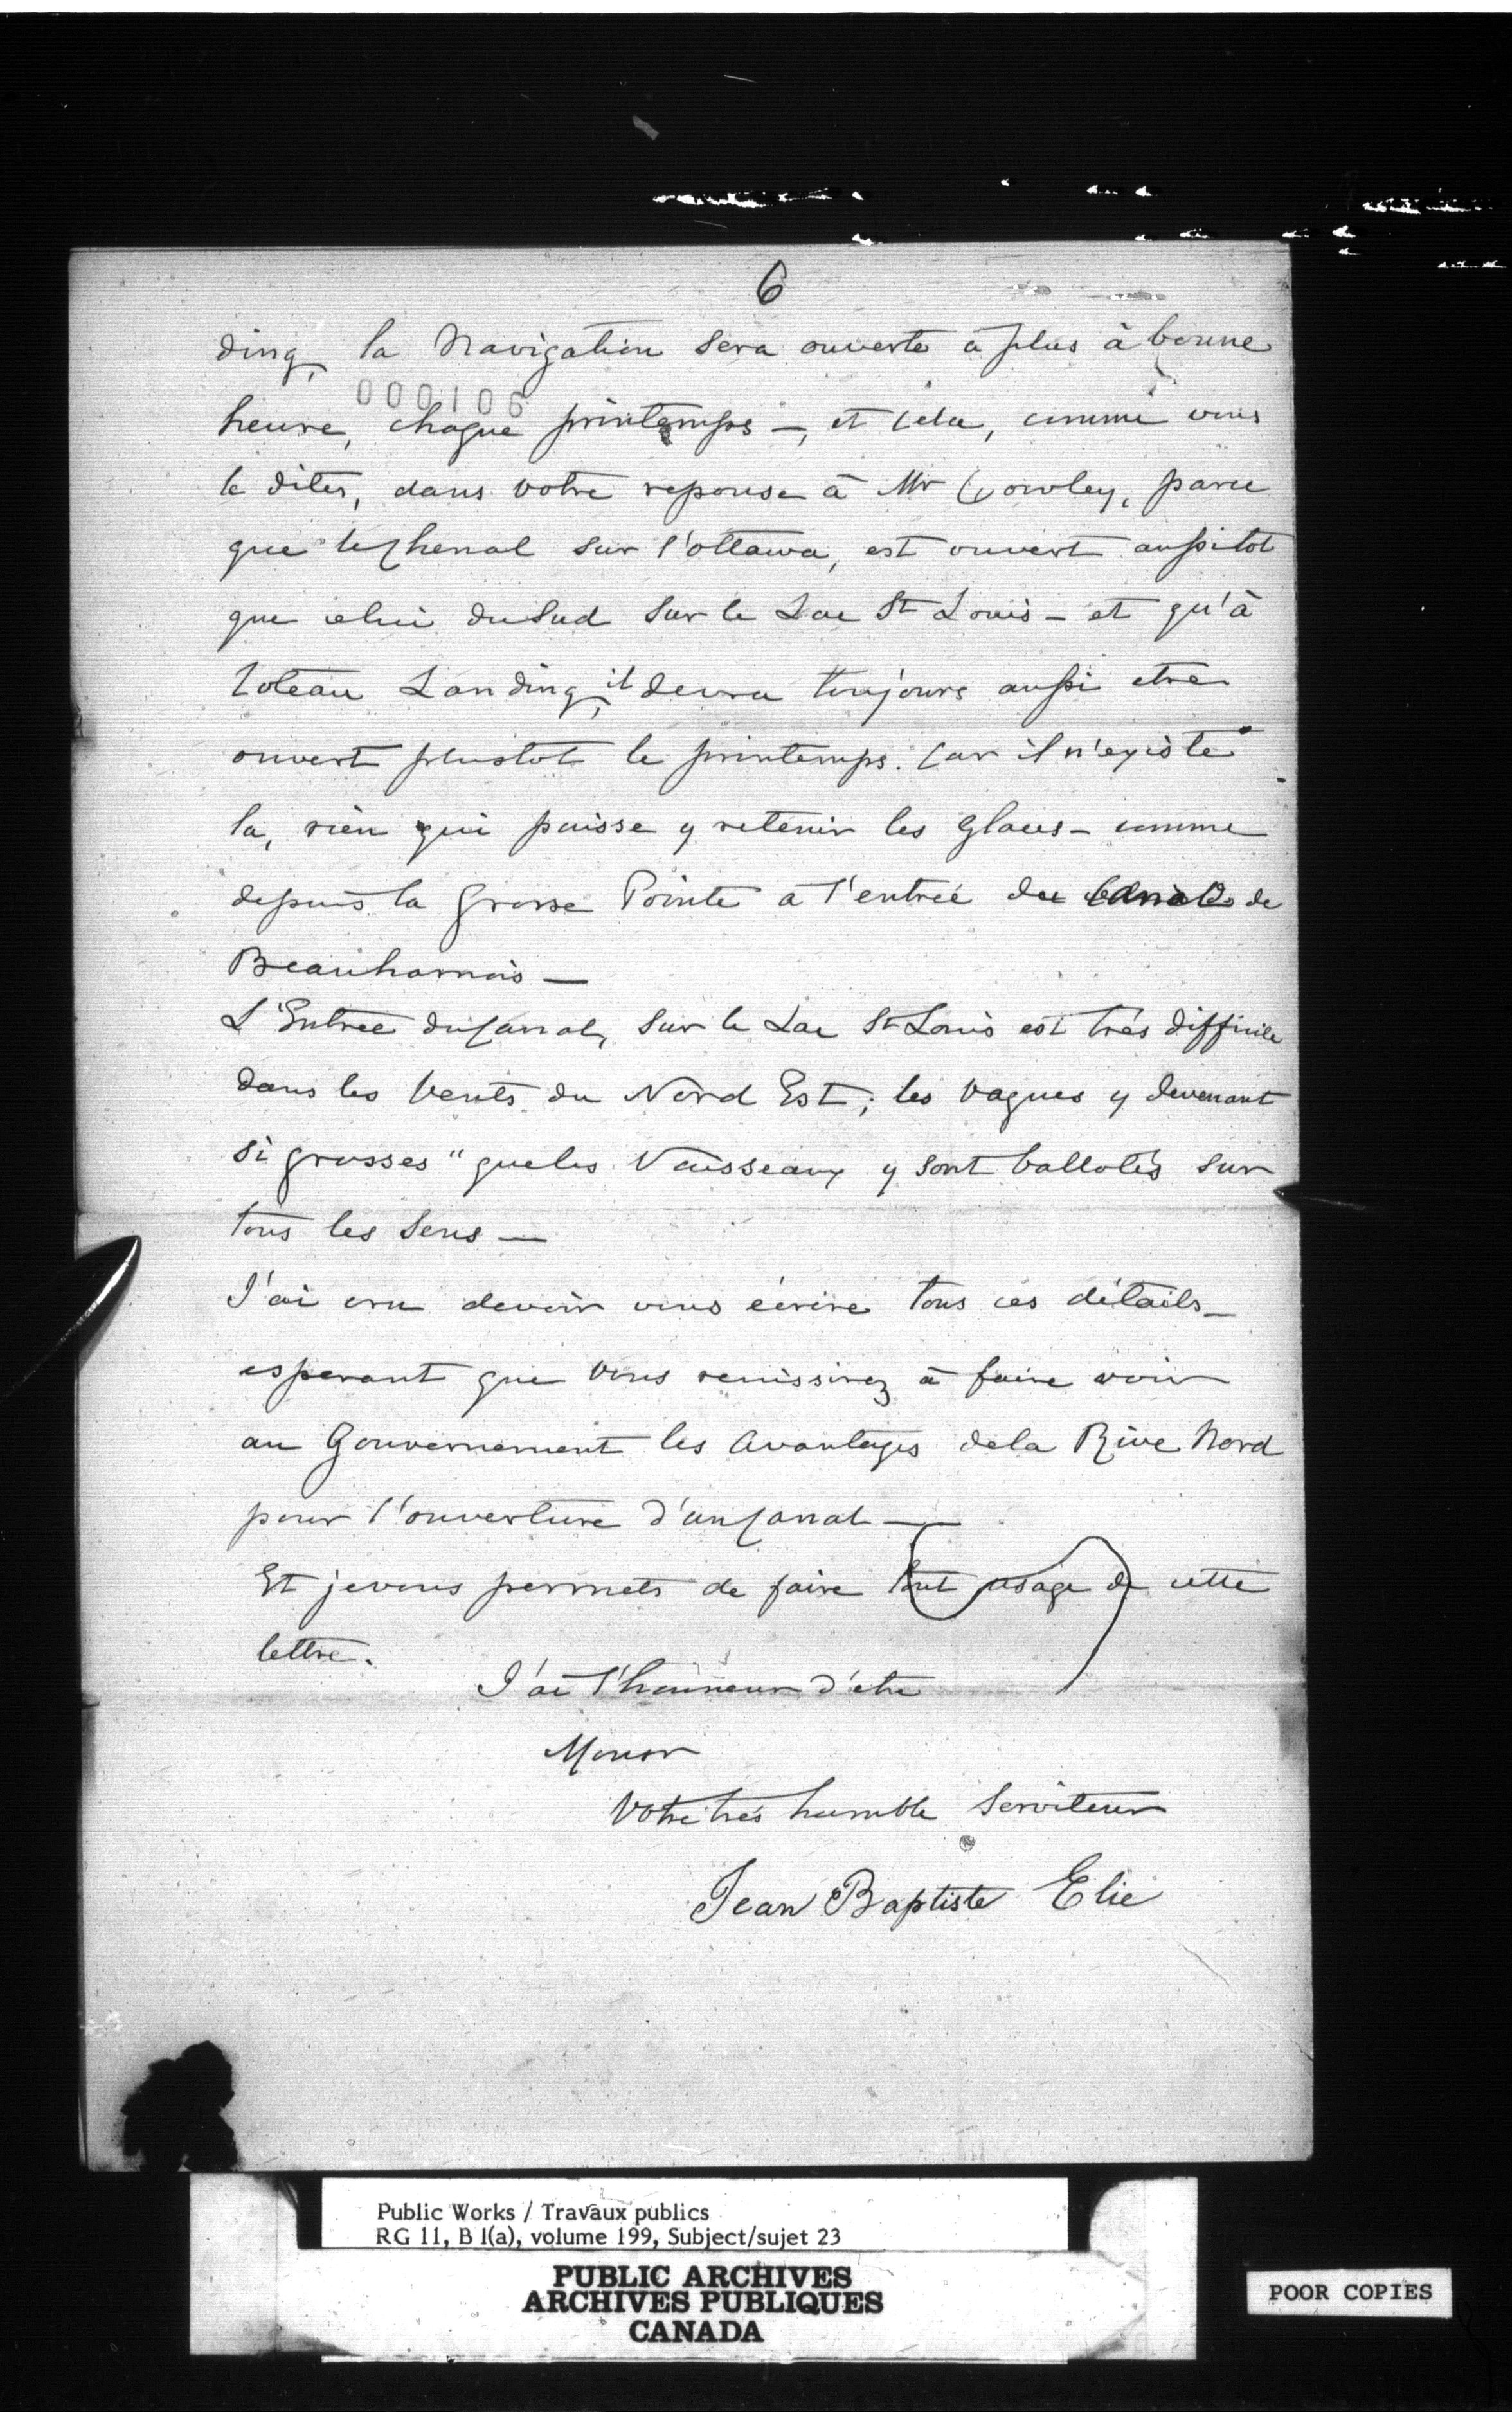 6
ding, la Navigation sera ouverte a plus à bonne
000106
heure, chaque printemps —, et Cela, comme vous
le dites, dans votre reponse à Mr Cowley, parce
que le Chenal sur l'ottawa, est ouvert aussitot
que celui du Sud sur le Lac St Louis — et qu'à
Coteau Landing, il devra toujours aussi etre
ouvert plustot le printemps. Car il n'existe
la, rien qui puisse y retenir les glaces — comme
depuis la Grosse Pointe a l'entrée du Canal de
Beauharnois —
L'Entree du Canal, sur le Lac St Louis est très difficile
dans les Vents du Nord Est; les vagues y devenant
si grosses " que les Vaisseaux y sont ballotés sur
tous les sens —
J'ai cru devoir vous écrire tous ces détails —
esperant que vous reussirez à faire voir
au Gouvernement les Avantages de la Rive Nord
pour l'ouverture d'un Canal —
Et je vous permets de faire tout usage de cette
lettre.
J'ai l'honneur d'etre
Monsr
Votre très humble Serviteur
Jean Baptiste Elie
Public Works / Travaux publics
RG 11, B 1(a), volume 199, Subject/sujet 23
PUBLIC ARCHIVES
ARCHIVES PUBLIQUES
CANADA
POOR COPIES